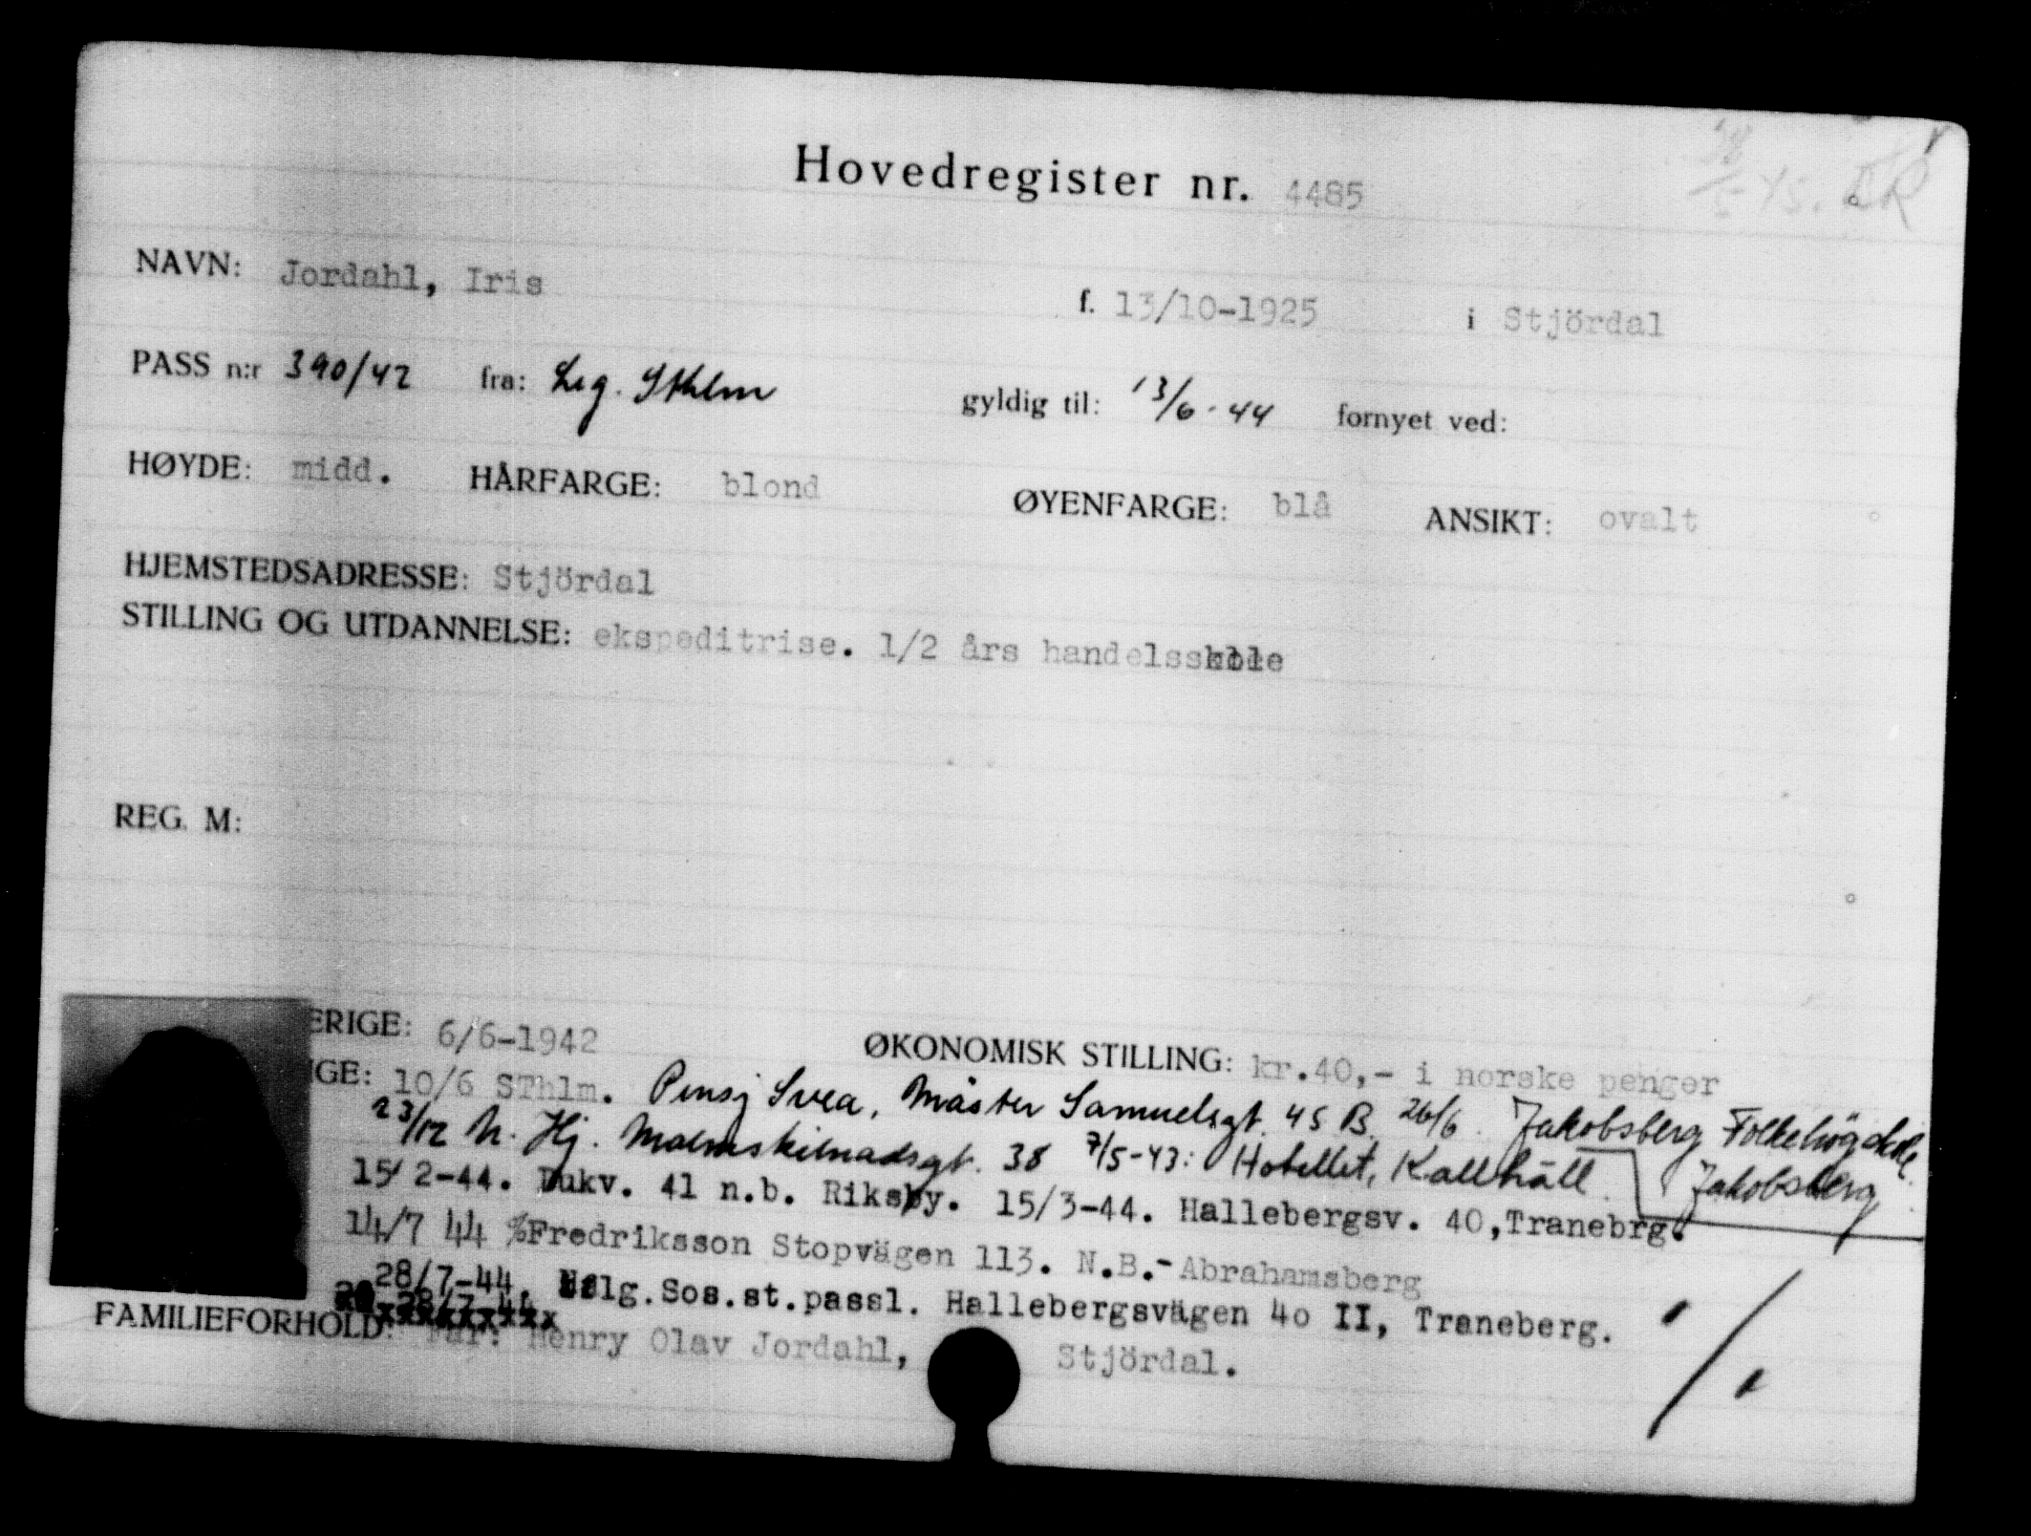 Hovedregister nr. 4485
45. ER
NAVN: Jordahl, Iris f. 13/10-1925 i Stjördal
PASS n:r 390/42 fra: Leg. Sthlm gyldig til: 13/6-44 fornyet ved:
HØYDE: midd. HÅRFARGE: blond ØYENFARGE: blå ANSIKT: ovalt
HJEMSTEDSADRESSE: Stjördal
STILLING OG UTDANNELSE: ekspeditrise. 1/2 års handelsskole
REG. M:
ERIGE: 6/6-1942 ØKONOMISK STILLING: kr.40,- i norske penger
IGE: 10/6 SThlm. Pensj Svea, Mäster Samuelsgt. 45 B. 26/6. Jakobsberg Folkehögskole
23/12 N. Hj. Malmskilnadsgt. 38 7/5-43: Hotellet, Kallhäll. Jakobsberg
15/2-44. Dukv. 41 n.b. Riksby. 15/3-44. Hallebergsv. 40, Tranebrg.
14/7 44 %Fredriksson Stopvägen 113. N.B.-Abrahamsberg
28/7-44. Sos.st.passl. Hallebergsvägen 4o II, Traneberg.
FAMILIEFORHOLD: Far: Henry Olav Jordahl, Stjördal.